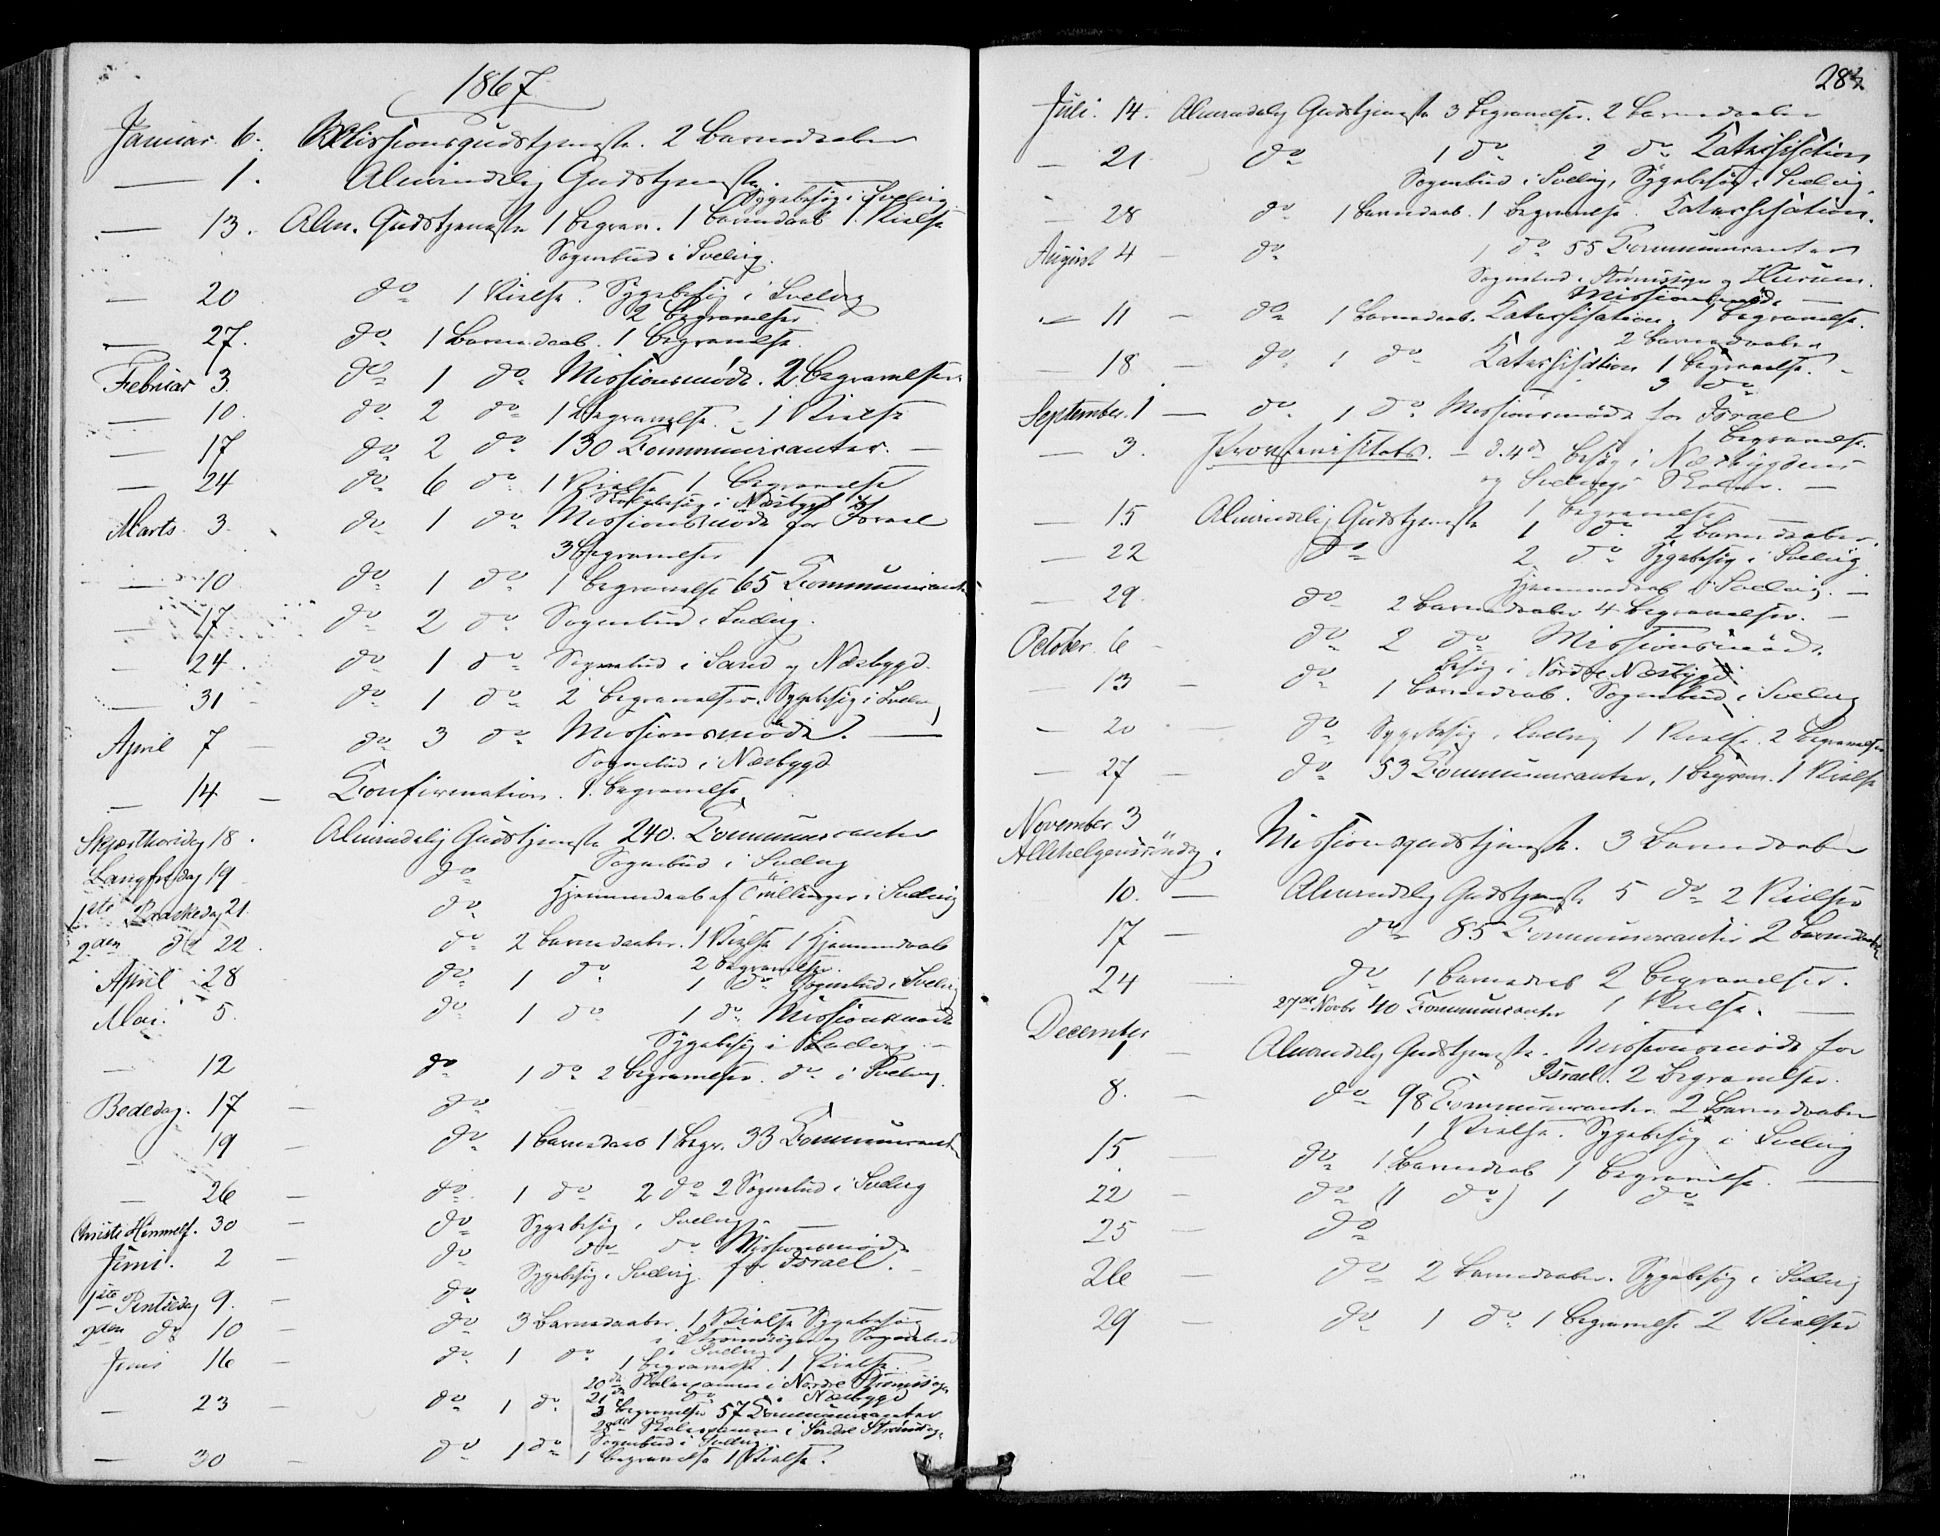 1867
Januar 6. Missionsgudstjeneste. 2 Barnedaaber
— 1. Almindelig Gudstjeneste.
Sygebesøg i Svelvig
— 13. Alm. Gudstjeneste 1 begrav. 1 barnedaab 1 Vielse
Sognebud i Svelvig.
— 20 do 1 Vielse. Sygebesøg i Svelvig
2 begravelser
— 27. do 1 Barnedaab. 1 begravelse.
Februar 3. do 1 do Missionsmøde. 2 begravelser.
— 10. do 2 do 1 begravelse. – 1 Vielse
— 17 do 2 do 130 Communicanter. —
— 24 do 6 do 1 Vielse 1 begravelse
Skolebesøg i Næsbygd
Marts 3. do 1 do Missionsmøde for Israel
3 begravelser
— 10. do 1 do 1 begravelse 65 Communicant
— 17 do 2 do Sognebud i Svelvig.
— 24. do 1 do Sognebud i Sand og Næsbygd.
— 31 – do 1 do 2 begravelser. Sygebesøg i Svelv
April 7 — do 3 do Missionsmøde. —
Sognebud i Næsbygd
— 14 – Confirmation. 1. begravelse
Skjærthorsdag 18. Almindelig Gudstjeneste 240. Communicanter
Sognebud i Svelvig
Langfredag 19 do
Hjemmedaab af Tvillinger i Svelvig
1ste Paaskedag 21. do
2den do 22. do 2 barnedaaber. 1 Vielse 1 Hjemmedaab
2 begravelser.
April 28 do 1 do 1 do Sognebud i Svelvig
Mai. 5. do 1 do 1 do Missionsmøde
Sygebesøg i Svelvig —
— 12 do 1 do 2 begravelser. do i Svelvig.
Bededag. 17 – do
— 19 – do 1 barnedaab 1 begr. 33 Communicant
— 26 – do 1 do 2 do 2 Sognebud i Svelvig
Christi Himmelf. 30 – do Sygebesøg i Svelvig. —
Juni. 2 – do do do Missionsmøde
Sygebesøg i Svelvig. for Israel.
1ste Pintsedag 9. – do
2den do 10 – do 3 Barnedaaber. 1 Vielse Sygebesøg
i Strømssogn og Sognebud
i Svelvig
Juni 16 – do 1 do 1 begravelse. 1 Vielse.
20de Skoleexamen i Nordre Strømssogn
21de do i Næsbygd
— 23 – do 1 do 3 begravelser 57 Communicanter
28de Skoleexamen i Søndre Strømssogn
Sognebud i Svelvig.
— 30 – do 1 do 1 begravelse 1 Vielse.
282
Juli. 14. Almindelig Gudstjeneste 3 begravelser. 2 barnedaaber
— 21 do 1 do 2 do Katechisation
Sognebud i Svelvig, Sygebesøg i Svelvig.
— 28 do 1 barnedaab. 1 begravelse. Katechisation.
August 4 – do 1 do 55 Communicanter
Sognebud i Strømssogn og Hurum.
Missionsmøde —
— 11 – do 1 barnedaab. Katechisation. 1 begravelse.
2 barnedaaber
— 18 – do 1 do Katechisation 1 begravelse. –
3 do
September. 1 – do 1 do Missionsmøde for Israel
1 begravelse.
— 3. Provstevisitats. – d. 4de besøg i Næsbygdens
og Svelvigs Skoler. —
1 begravelse
— 15 Almindelig Gudstjeneste 1 do 2 barnedaaber.
— 22 do 2 do Sygebesøg i Svelvig
Hjemmedaab i Svelvig. —
— 29. do 2 barnedaaber 4 begravelser. —
October. 6 – do 2 do Missionsmøde.
besøg i Nordre Næsbygd
— 13 – do 1 barnedaab. Sognebud i Svelvig
— 20 – do Sygebesøg i Svelvig 1 Vielse. 2 begravelser
— 27 – do 53 Communicanter, 1 begrav. 1 Vielse
November 3
Allehelgensøndag. Missionsgudstjeneste. 3 Barnedaaber
10. – Almindelig Gudstjeneste 5 do 2 Vielser
17 – do 85 Communicanter 2 barnedaaber
24 – do 1 barnedaab 2 begravelser.
27de Novbr 40 Communicanter 1 Vielse. —
December
1 – Almindelig Gudstjeneste. Missionsmøde for
Israel. 2 begravelser.
8. – do 98 Communicanter. 2 Barnedaaber
1 Vielse. Sygebesøg i Svelvig
15 – do 1 Barnedaab 1 begravelse. —
22 – do (1 do) 1 do
25 – do
26 – do 2 barnedaaber. Sygebesøg i Svelvig
29 – do 1 do 1 begravelse 2 Vielser